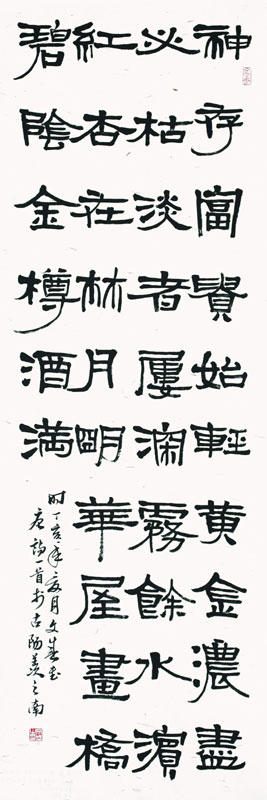 神存富貴始輕黃金濃盡
必枯淡者屢深霧餘水濱
紅杏在林月明華屋畫橋
碧陰金樽酒滿
时丁亥年夏月文春書
唐詩一首於古陽羨之南